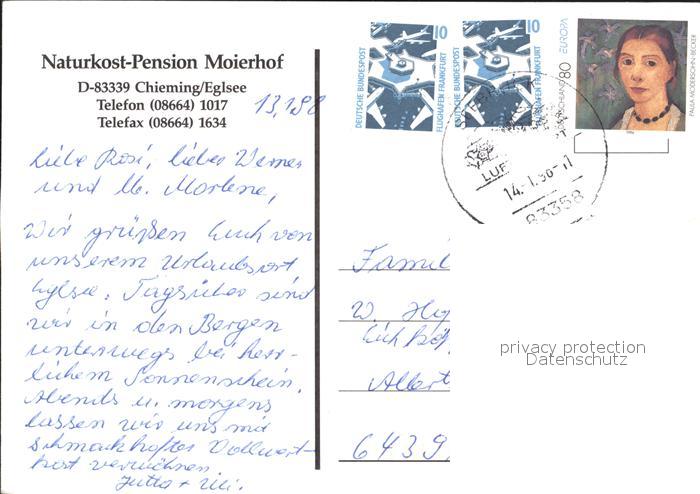 Naturkost-Pension Moierhof
D-83339 Chieming/Eglsee
Telefon (08664) 1017
Telefax (08664) 1634
13,1,98
Liebe Rosi, lieber Werner
und M. Marlene,
Wir grüßen Euch von
unserem Urlaubsort
Eglsee. Tagsüber sind
wir in den Bergen
unterwegs bei herr-
lichem Sonnenschein.
Abends u. morgens
lassen wir uns mit
schmackhafter Vollwert-
kost verwöhnen
Jutta +
DEUTSCHE BUNDESPOST
10
FLUGHAFEN FRANKFURT
DEUTSCHE BUNDESPOST
10
FLUGHAFEN FRANKFURT
DEUTSCHLAND 80 EUROPA
PAULA MODERSOHN-BECKER
1996
LUF
14.-1.98-17
83358
Famil
W.
Albert
6439
privacy protection
Datenschutz